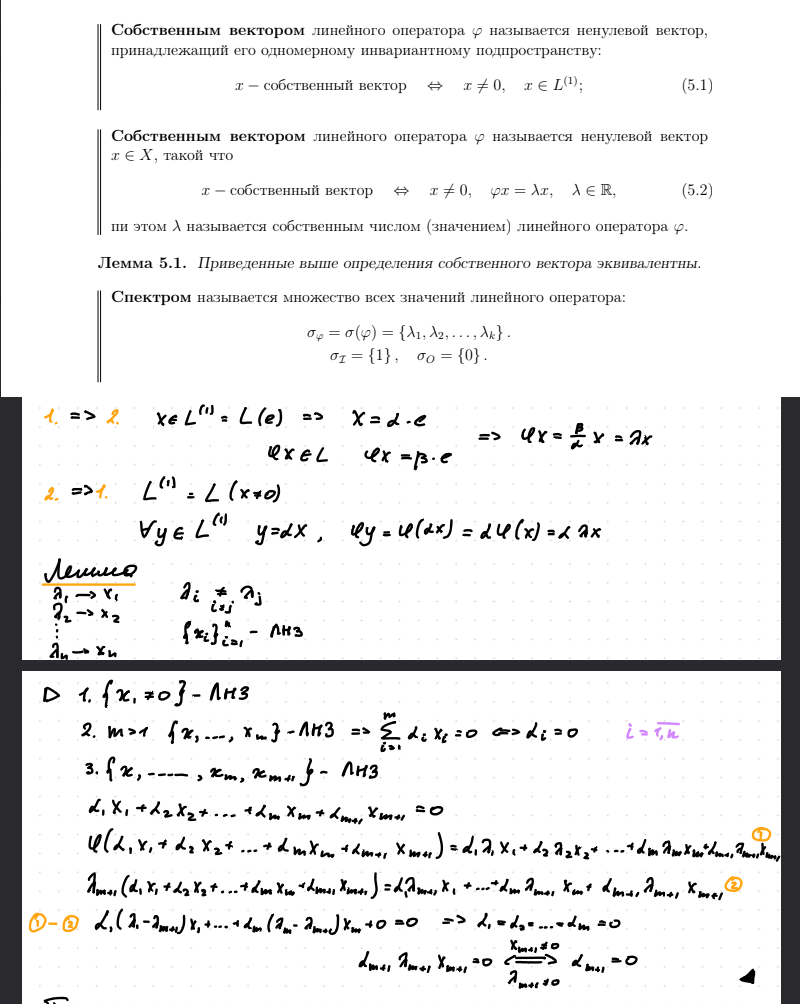 Собственным вектором линейного оператора φ называется ненулевой вектор,
принадлежащий его одномерному инвариантному подпространству:
x − собственный вектор ⇔ x ≠ 0, x ∈ L⁽¹⁾; (5.1)
Собственным вектором линейного оператора φ называется ненулевой вектор
x ∈ X, такой что
x − собственный вектор ⇔ x ≠ 0, φx = λx, λ ∈ ℝ, (5.2)
пи этом λ называется собственным числом (значением) линейного оператора φ.
Лемма 5.1. Приведенные выше определения собственного вектора эквивалентны.
Спектром называется множество всех значений линейного оператора:
σ_φ = σ(φ) = {λ₁, λ₂, . . . , λₖ} .
σ_ℐ = {1} , σ_O = {0} .
1. => 2. x ∈ L⁽¹⁾ = L(e) => x = α · e
φx ∈ L φx = β · e => φx = β/α x = λx
2. => 1. L⁽¹⁾ = L (x≠0)
∀y ∈ L⁽¹⁾ y = αx , φy = φ(αx) = αφ(x) = α λx
Лемма
λ₁ → x₁ λᵢ ≠ λⱼ
i=j
λ₂ → x₂
⋮ {xᵢ}ⁿᵢ₌₁ - ЛНЗ
λₙ → xₙ
▷ 1. {x₁ ≠ 0} - ЛНЗ
2. m>1 {x, ..., xₘ} - ЛНЗ => ∑ᵐᵢ₌₁ αᵢ xᵢ = 0 <=> αᵢ = 0 i = 1,n
3. {x, ....., xₘ, xₘ₊₁} - ЛНЗ
α₁x₁ + α₂x₂ + ... + αₘxₘ + αₘ₊₁xₘ₊₁ = 0
φ(α₁x₁ + α₂x₂ + ... + αₘxₘ + αₘ₊₁xₘ₊₁) = α₁λ₁x₁ + α₂λ₂x₂ + ... + αₘλₘxₘ + αₘ₊₁λₘ₊₁xₘ₊₁ ①
λₘ₊₁(α₁x₁ + α₂x₂ + ... + αₘxₘ + αₘ₊₁xₘ₊₁) = α₁λₘ₊₁x₁ + ... + αₘλₘ₊₁xₘ + αₘ₊₁λₘ₊₁xₘ₊₁ ②
① - ② α₁(λ₁ - λₘ₊₁)x₁ + ... + αₘ(λₘ - λₘ₊₁)xₘ + 0 = 0 => α₁ = α₂ = ... = αₘ = 0
αₘ₊₁ λₘ₊₁ xₘ₊₁ = 0 <=> αₘ₊₁ = 0
xₘ₊₁ ≠ 0
λₘ₊₁ ≠ 0